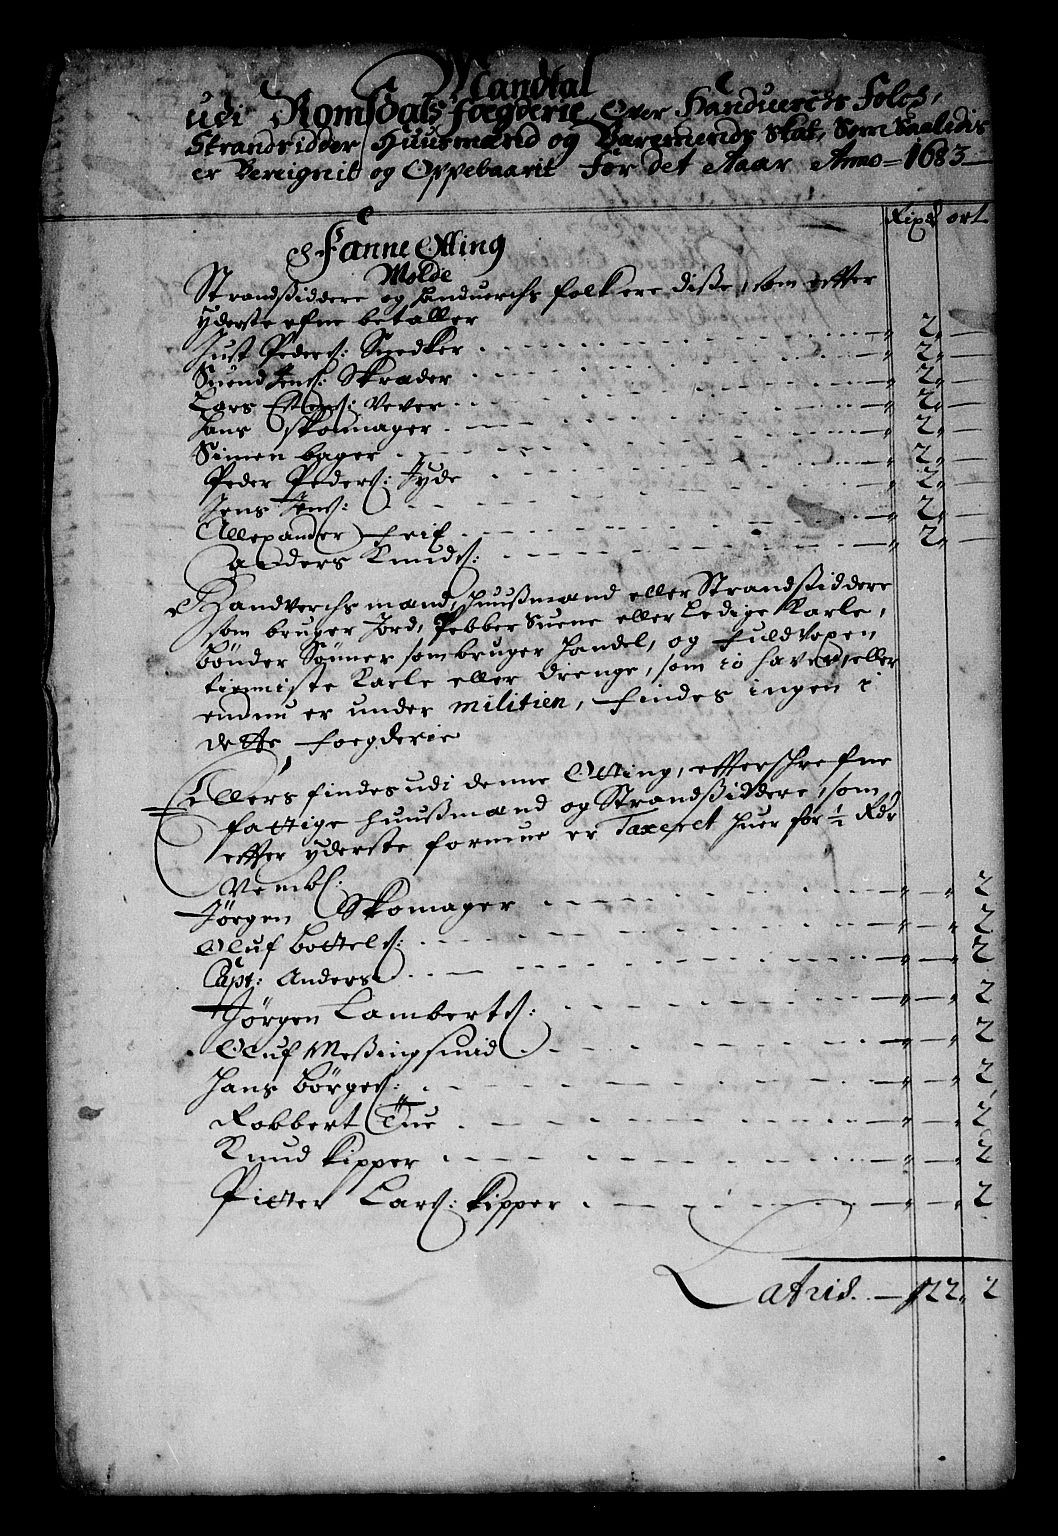 Mandtal
udi Romsdals foegderie, Ofver Handuerchs Folch,
Strandsidder, Huusmænd og Standsskat, Som Saaledis
er Bereignit og Oppebaarit for det Aaar Anno = 1683
Rixd ort
Fanne Otting
Molde
Strandsiddere og handuerchs folk ere disse, som effter
yderste efne betaller
Just Peders: Snedker 2
Suend Jens: Skræder 2
Lars Vever 2
Hans Skomager 2
Simen bager 2
Peder Peders: Jyde 2
Jens Jens: 2
Allexander frif 2
Anders Knuds: 2
Handverchs mænd, huusmænd eller Strandsiddere
som bruger Jord, Pebber Suene eller Ledige Karle,
bønder Sønner som bruger Handel, og fuldvoxen
tienniste Karle eller drenge, som ey haver, eller
endnu er under militien, findes ingen i
dette foegderie
Ellers findes udi denne Otting, effterschrefne
fattige huusmænd og Strandsiddere, som
effter yderste formue er Taxeret huer for ½ Rdr
Jørgen Skomager 2
Oluf bottels: 2
Capt: Anders 2
Jørgen Lamberts: 2
Oluf Messingsmid 2
Hans børges: 2
Robbert Tue 2
Knud kipper 2
Pitter Lars: kipper 2
Latris. 22 2